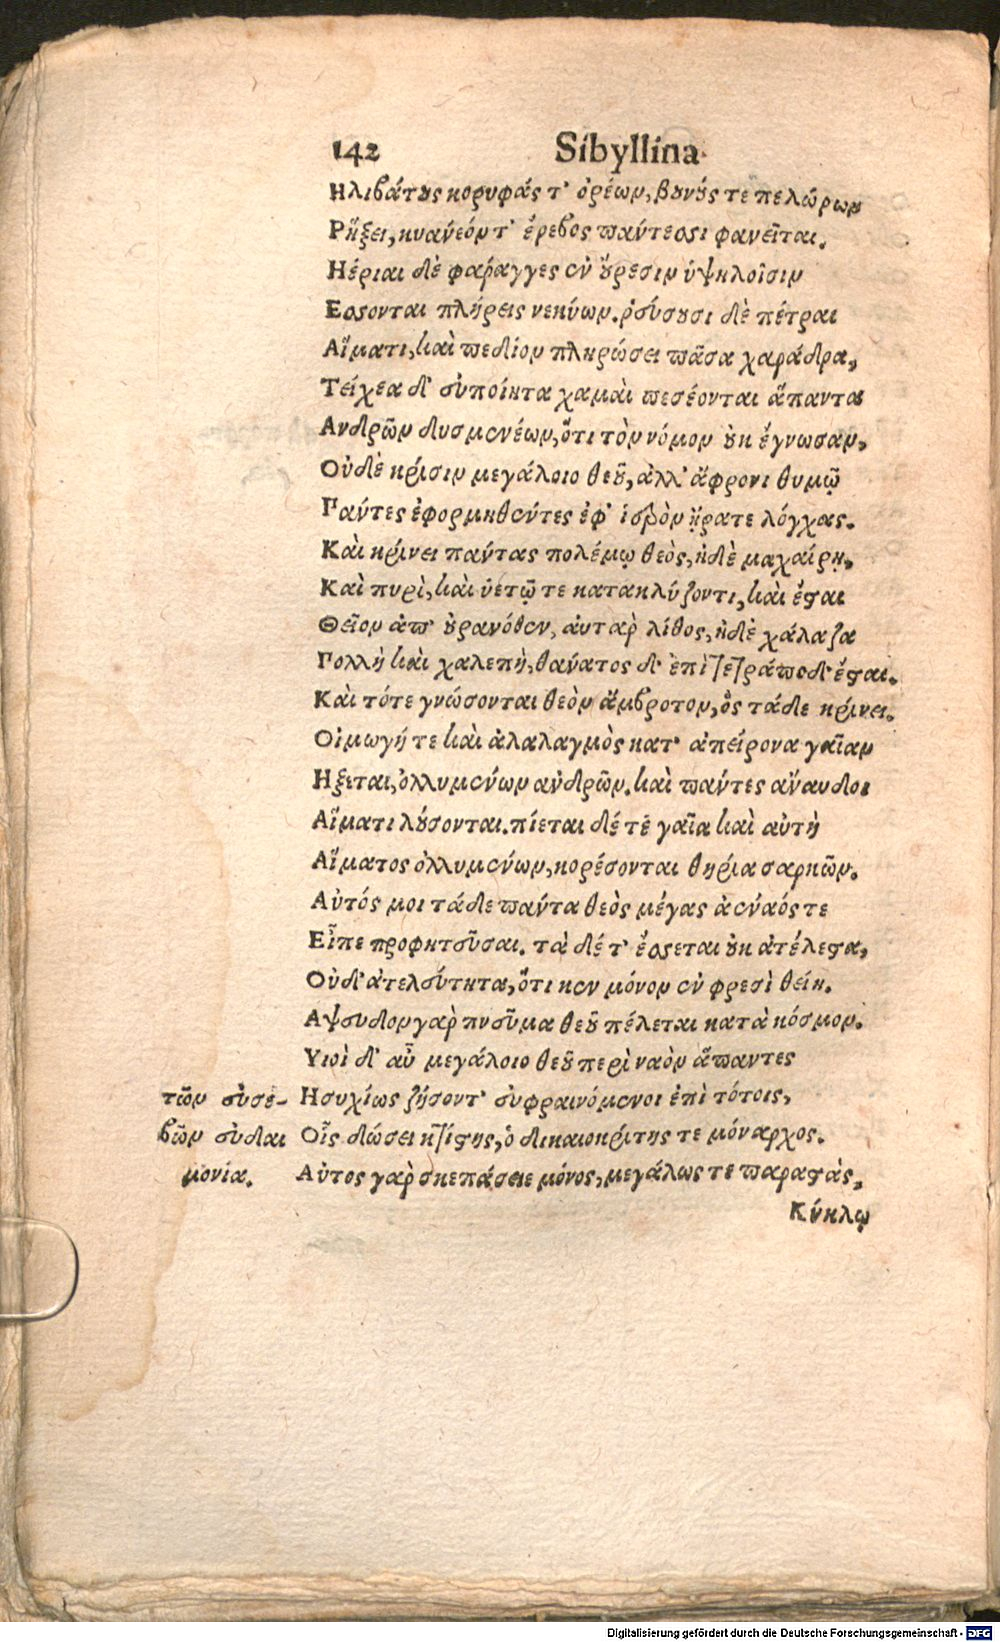 142 Sibyllina
Ηλιβάτους κορυφάς τ' ὀρέων, βουνούς τε πελώρων
Ρήξει, κυανέόν τ' ἔρεβος πάντεσσι φανεῖται.
Ηέριαι δὲ φάραγγες ἐν οὔρεσιν ὑψηλοῖσιν
Εσσονται πλήρεις νεκύων. ῥεύσουσι δὲ πέτραι
Αἵματι, καὶ πεδίον πληρώσει πᾶσα χαράδρα,
Τείχεα δ' εὐποίητα χαμαὶ πεσέονται ἅπαντα
Ανδρῶν δυσμενέων, ὅτι τὸν νόμον οὐκ ἔγνωσαν,
Οὐδὲ κρίσιν μεγάλοιο θεοῦ, ἀλλ' ἄφρονι θυμῷ
Πάντες ἐφορμηθέντες ἐφ' ἱερὸν ᾕρατε λόγχας.
Καὶ κρίνει πάντας πολέμῳ θεὸς, ἠδὲ μαχαίρῃ,
Καὶ πυρὶ, καὶ ὑετῷ τε κατακλύζοντι, καὶ ἔσται
Θεῖον ἀπ' οὐρανόθεν, αὐτὰρ λίθος, ἠδὲ χάλαζα
Πολλὴ καὶ χαλεπὴ, θάνατος δ' ἐπὶ τετράποδ' ἔσται.
Καὶ τότε γνώσονται θεὸν ἄμβροτον, ὃς τάδε κρίνει.
Οἰμωγή τε καὶ ἀλαλαγμὸς κατ' ἀπείρονα γαῖαν
Ηξεται, ὀλλυμένων ἀνδρῶν. καὶ πάντες ἄναυδοι
Αἵματι λούσονται. πίεται δέ τε γαῖα καὶ αὐτὴ
Αἵματος ὀλλυμένων, κορέσονται θηρία σαρκῶν.
Αὐτός μοι τάδε πάντα θεὸς μέγας ἀέναός τε
Εἶπε προφητεῦσαι. τὰ δέ τ' ἔσσεται οὐκ ἀτέλεστα,
Οὐδ' ἀτελεύτητα, ὅτι κεν μόνον ἐν φρεσὶ θείη.
Αψευδον γὰρ πνεῦμα θεοῦ πέλεται κατὰ κόσμον.
Υιοὶ δ' αὖ μεγάλοιο θεοῦ περὶ ναὸν ἅπαντες
τῶν εὐσε- Ησυχίως ζήσοντ' εὐφραινόμενοι ἐπὶ τότοις,
βῶν εὐδαι Οἷς δώσει κτίστης, ὁ δικαιοκρίτης τε μόναρχος.
μονία. Αὐτος γὰρ σκεπάσειε μόνος, μεγάλως τε παραστὰς,
Κύκλῳ
Digitalisierung gefördert durch die Deutsche Forschungsgemeinschaft - DFG